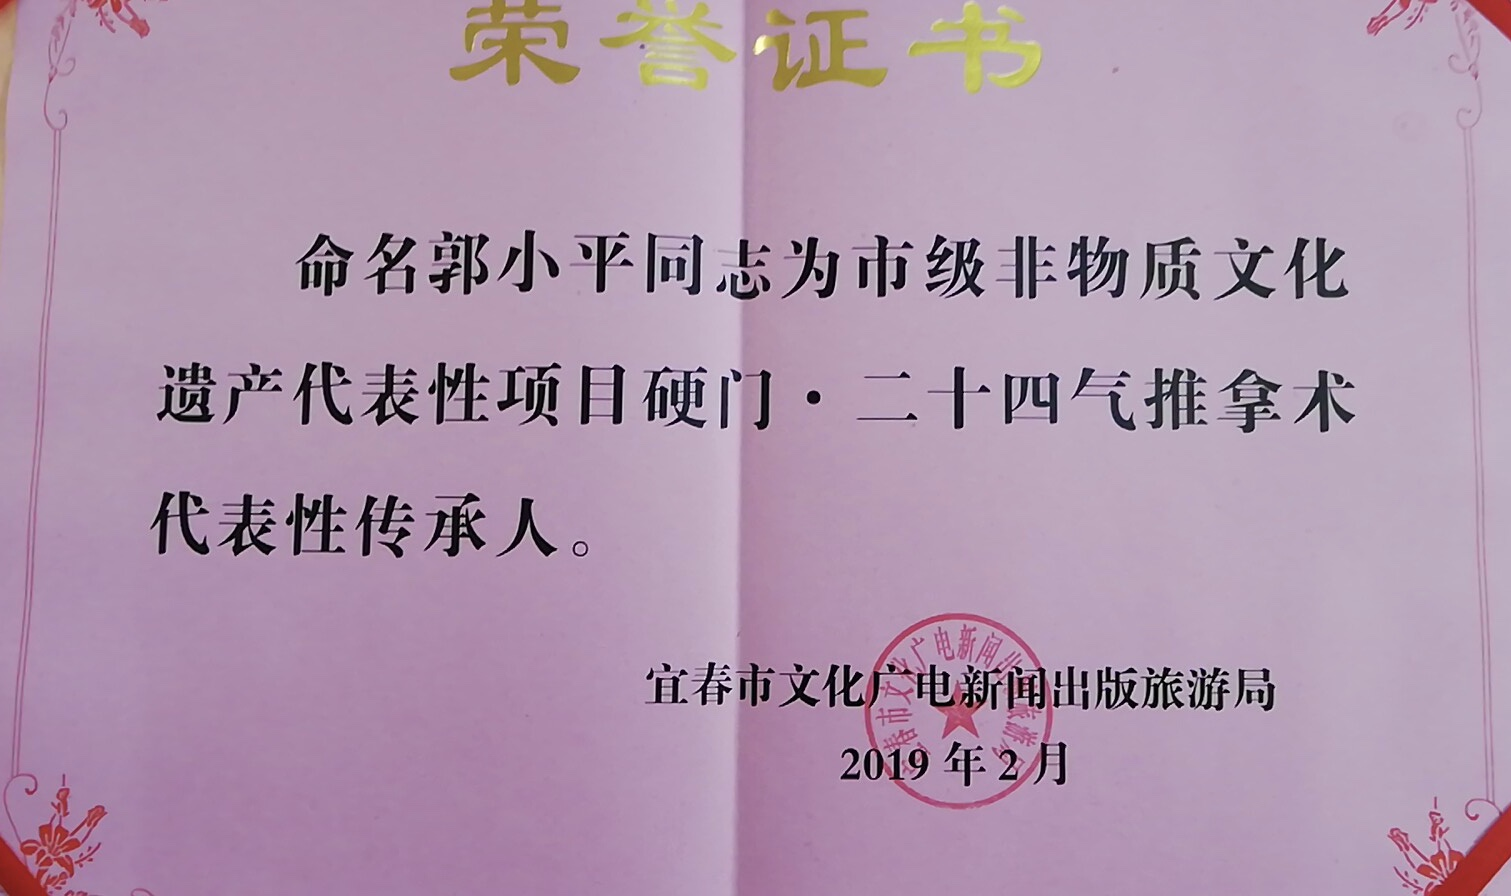 荣誉证书
命名郭小平同志为市级非物质文化
遗产代表性项目硬门·二十四气推拿术
代表性传承人。
宜春市文化广电新闻出版旅游局
2019年2月
宜春市文化广电新闻出版旅游局